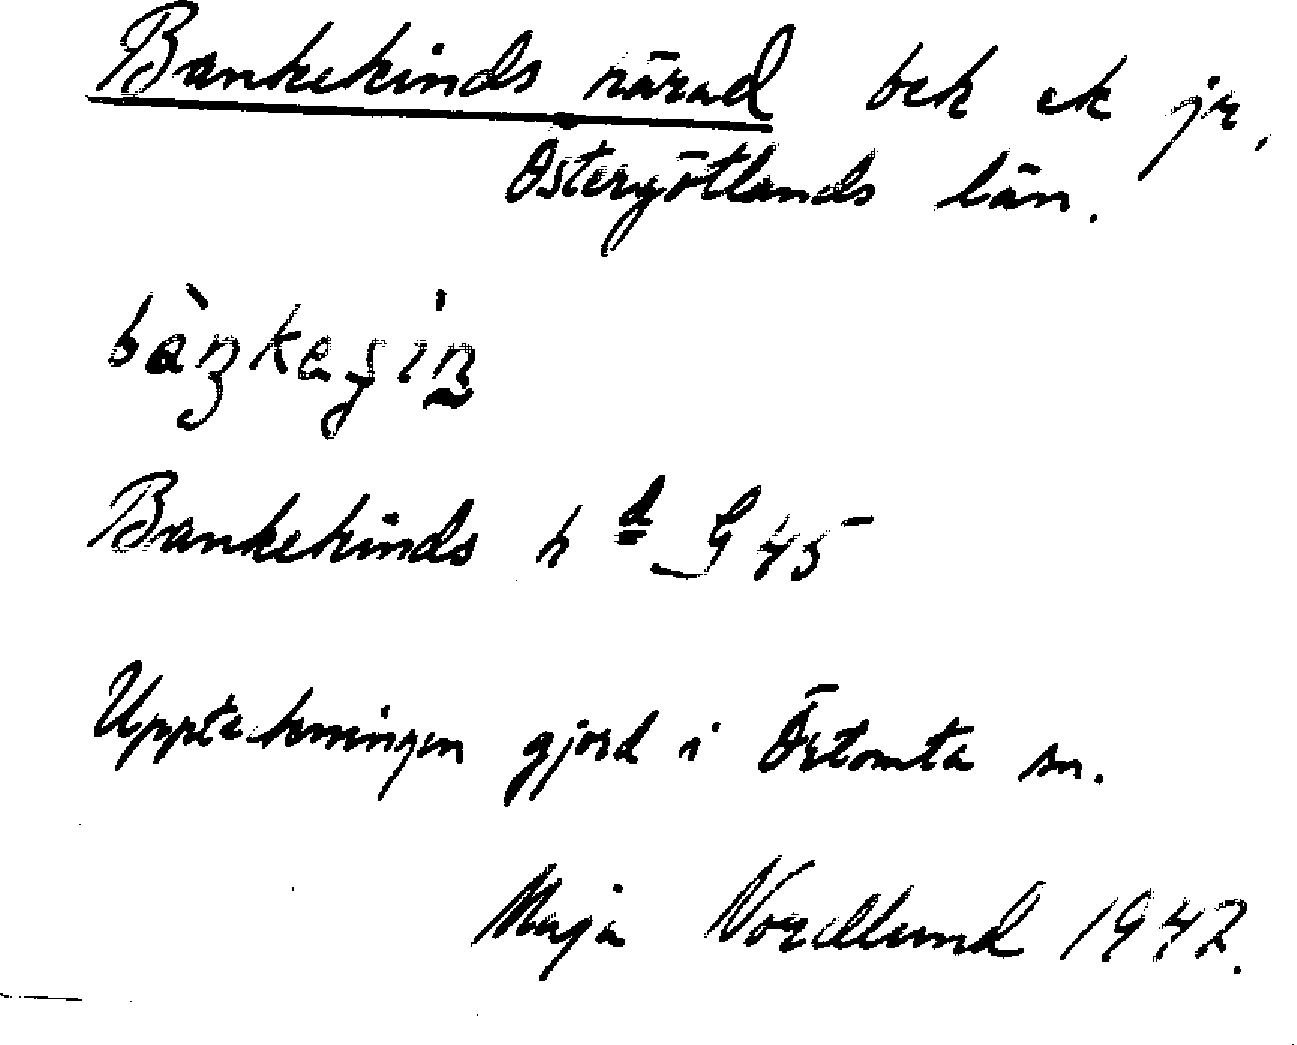 Bankekinds härad bek ek jr,
Östergötlands län.
bàŋkeʂin
Bankekinds hd G 45
Uppteckningen gjord i Örtomta sn.
Maja Nordlund 1942.